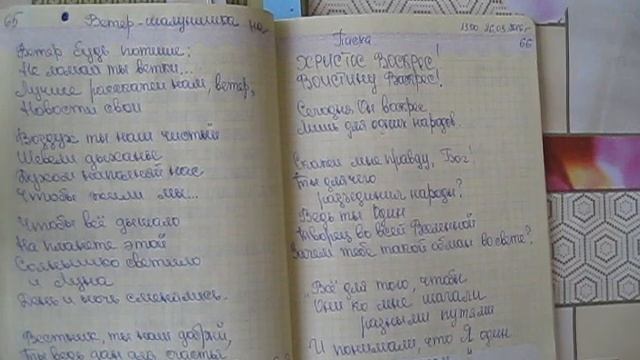 65
Ветер-шалунишка
Ветер будь потише:
Не ломай ты ветки...
Лучше расскажи нам, ветер,
Новости свои
Воздух ты нам чистый
Шевели дыханье
нас
Чтобы жили мы...
Чтобы всё дышало
На планете этой
Солнышко светило
и Луна
День и ночь сменялись.
Вестник, ты наш добрый,
Ты ведь дан для счастья
1300
66
Пасха
ХРИСТОС ВОСКРЕС!
ВОИСТИНУ ВОСКРЕС!
Сегодня, Он воскрес
Лишь для одних народов.
Скажи мне правду, Бог!
Ты для чего
разъединил народы?
Ведь ты Один
Творец во всей Вселенной
Зачем тебе такой обман во свете?
"Всё для того, чтобы
Они ко мне шагали
разными путями
И понимали, что Я один